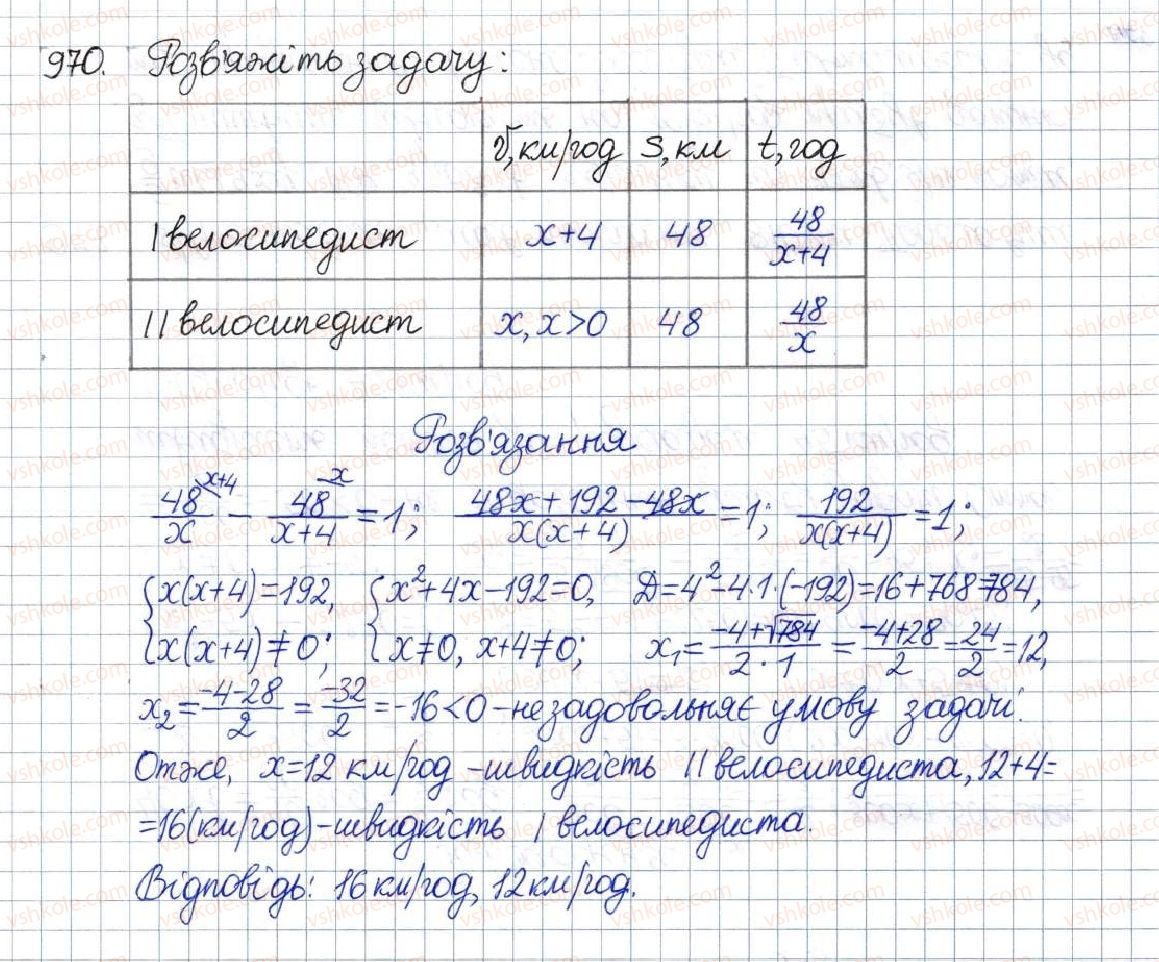 970. Розв'яжіть задачу:
v, км/год s, км t, год
I велосипедист x+4 48 48/(x+4)
II велосипедист x, x>0 48 48/x
Розв'язання
48/x ^(x+4) − 48/(x+4) ^x = 1; (48x+192−48x)/(x(x+4)) = 1; 192/(x(x+4)) = 1;
{x(x+4)=192, {x²+4x−192=0, Д=4²−4·1·(−192)=16+768=784,
x(x+4)≠0; x≠0, x+4≠0; x₁=(−4+√784)/(2·1)=(−4+28)/2=24/2=12,
x₂=(−4−28)/2=−32/2=−16<0 – не задовольняє умову задачі.
Отже, x=12 км/год – швидкість II велосипедиста, 12+4=
=16(км/год) – швидкість I велосипедиста.
Відповідь: 16 км/год, 12 км/год.
vshkole.com